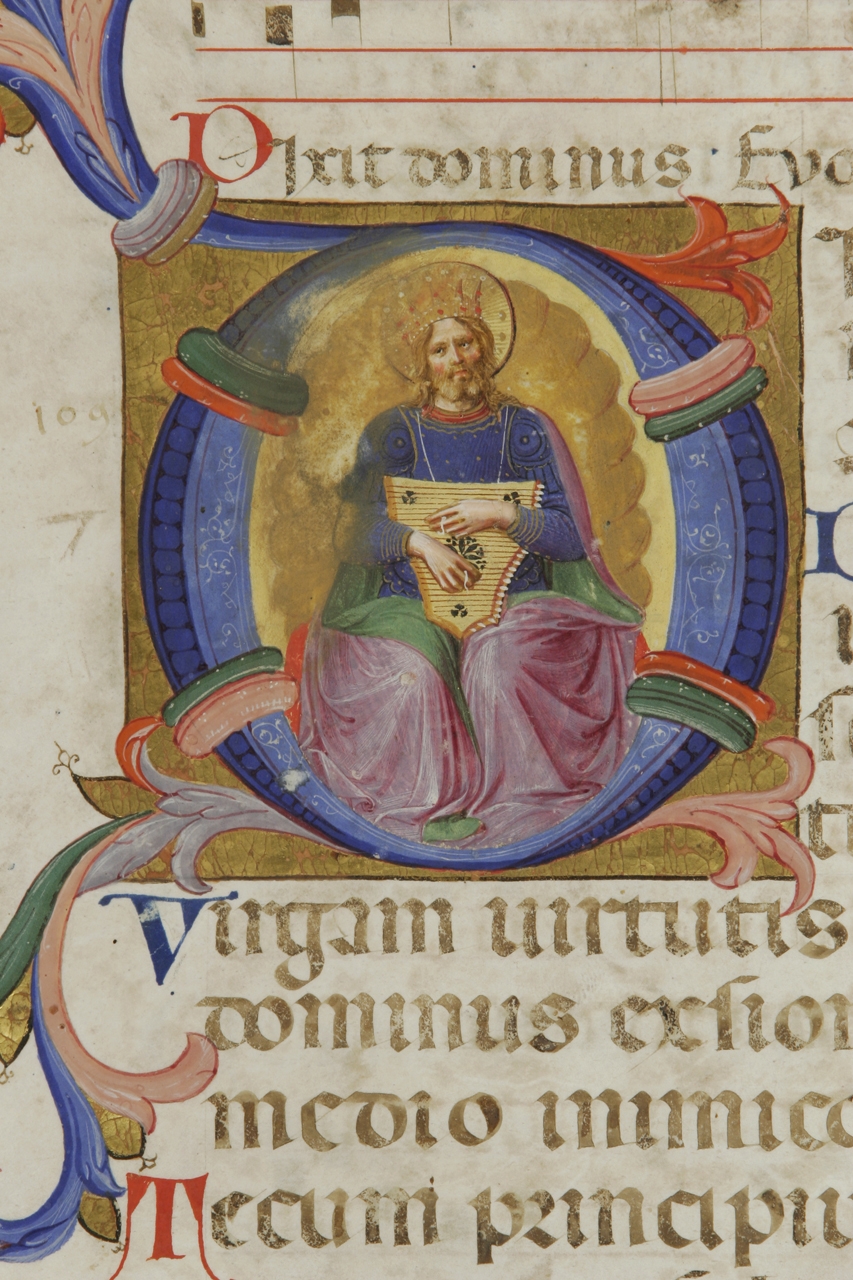 Dixit dominus. Evo
109
D
Virgam uirtutis
dominus exsion
medio inimico
Tecum principiu